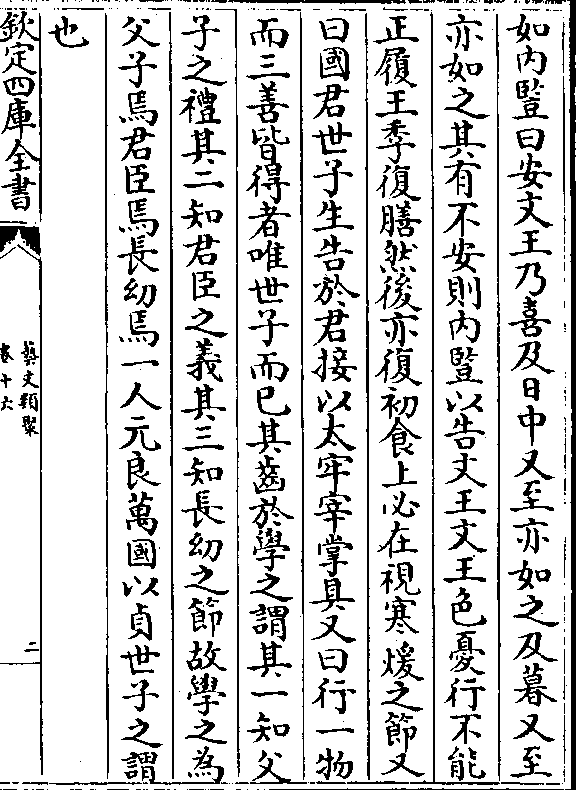 如內豎曰安文王乃喜及日中又至亦如之及暮又至
亦如之其有不安則內豎以告文王文王色憂行不能
正履王季復膳然後亦復初食上必在視寒煖之節又
曰國君世子生告於君接以太牢宰掌具又曰行一物
而三善皆得者唯世子而已其齒於學之謂其一知父
子之禮其二知君臣之義其三知長幼之節故學之為
父子焉君臣焉長幼焉一人元良萬國以貞世子之謂
也
欽定四庫全書
藝文類聚
卷十六
二